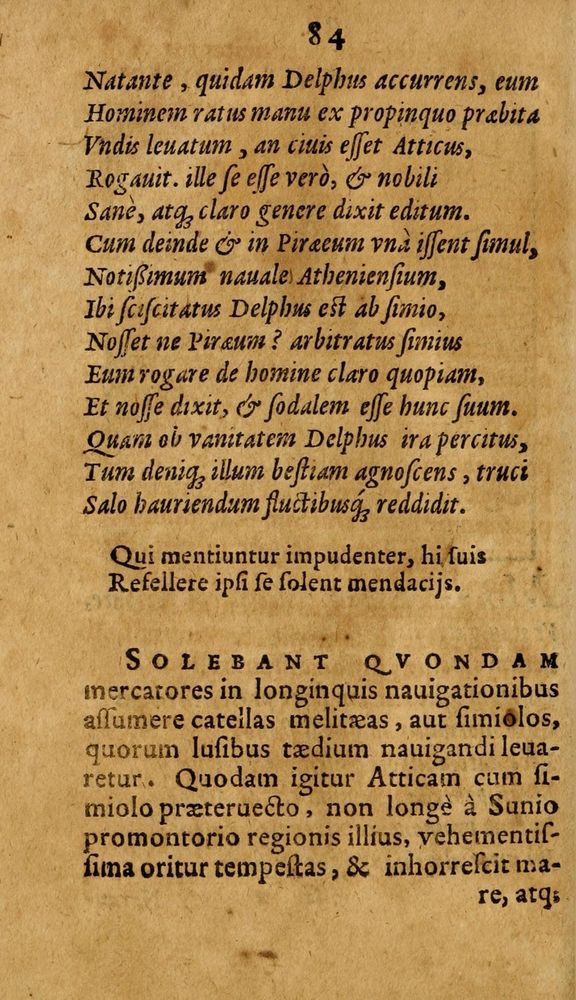 84
Natante, quidam Delphus accurrens, eum
Hominem ratus manu ex propinquo præbita
Vndis leuatum, an ciuis eſſet Atticus,
Rogauit. ille ſe eſſe verò, & nobili
Sanè, atq́ꝫ claro genere dixit editum.
Cum deinde & in Piræeum vnà iſſent ſimul,
Notißimum nauale Athenienſium,
Ibi ſciſcitatus Delphus eſt ab ſimio,
Noſſet ne Piræum? arbitratus ſimius
Eum rogare de homine claro quopiam,
Et noſſe dixit, & ſodalem eſſe hunc ſuum.
Quam ob vanitatem Delphus ira percitus,
Tum deniqꝫ illum beſtiam agnoſcens, truci
Salo hauriendum fluctibusq́ꝫ reddidit.
Qui mentiuntur impudenter, hi ſuis
Refellere ipſi ſe ſolent mendacijs.
SOLEBANT QVONDAM
mercatores in longinquis nauigationibus
aſſumere catellas melitæas, aut ſimiolos,
quorum luſibus tædium nauigandi leua-
retur. Quodam igitur Atticam cum ſi-
miolo præteruecto, non longè à Sunio
promontorio regionis illius, vehementiſ-
ſima oritur tempeſtas, & inhorreſcit ma-
re, atq;